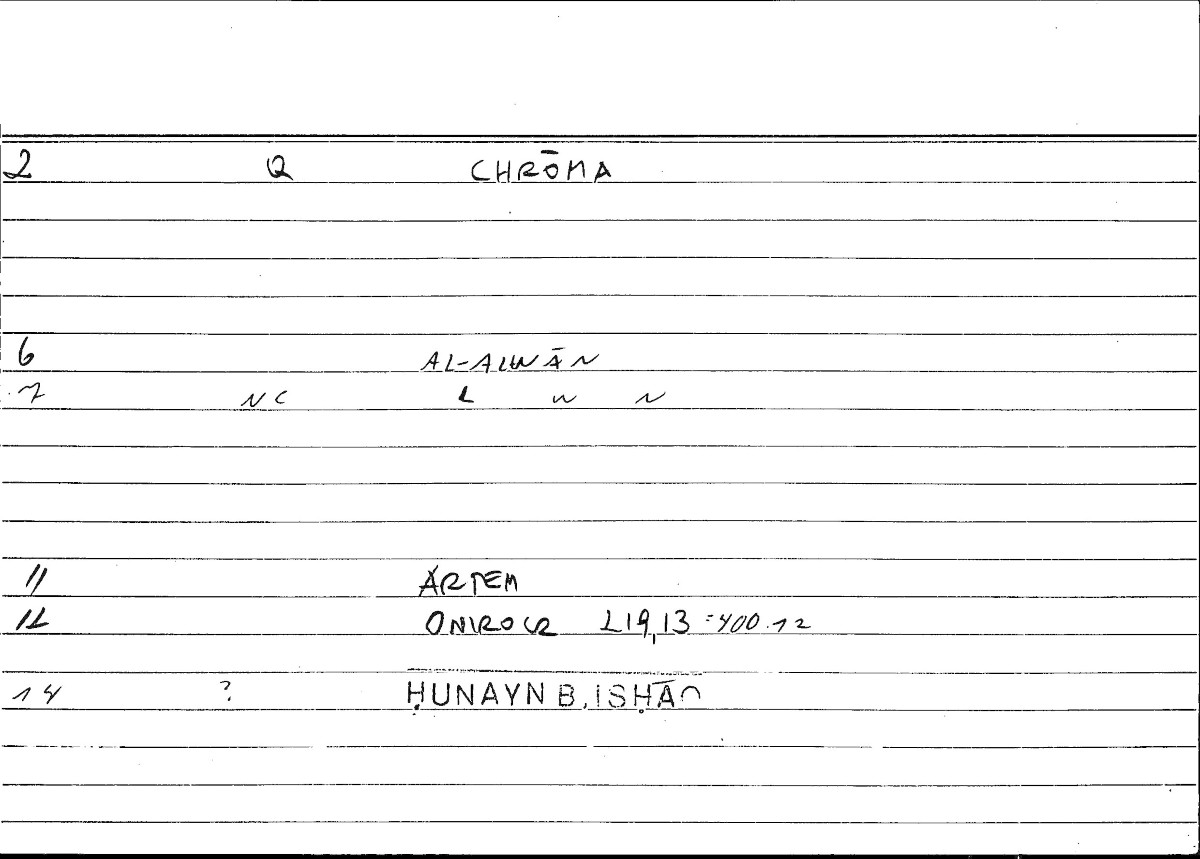 2 Q CHRŌMA
6 AL-ALWĀN
7 NC L W N
11 ARTEM
12 ONIROCR 219,13 = 400.12
14 ? ḤUNAYN B. ISḤĀQ